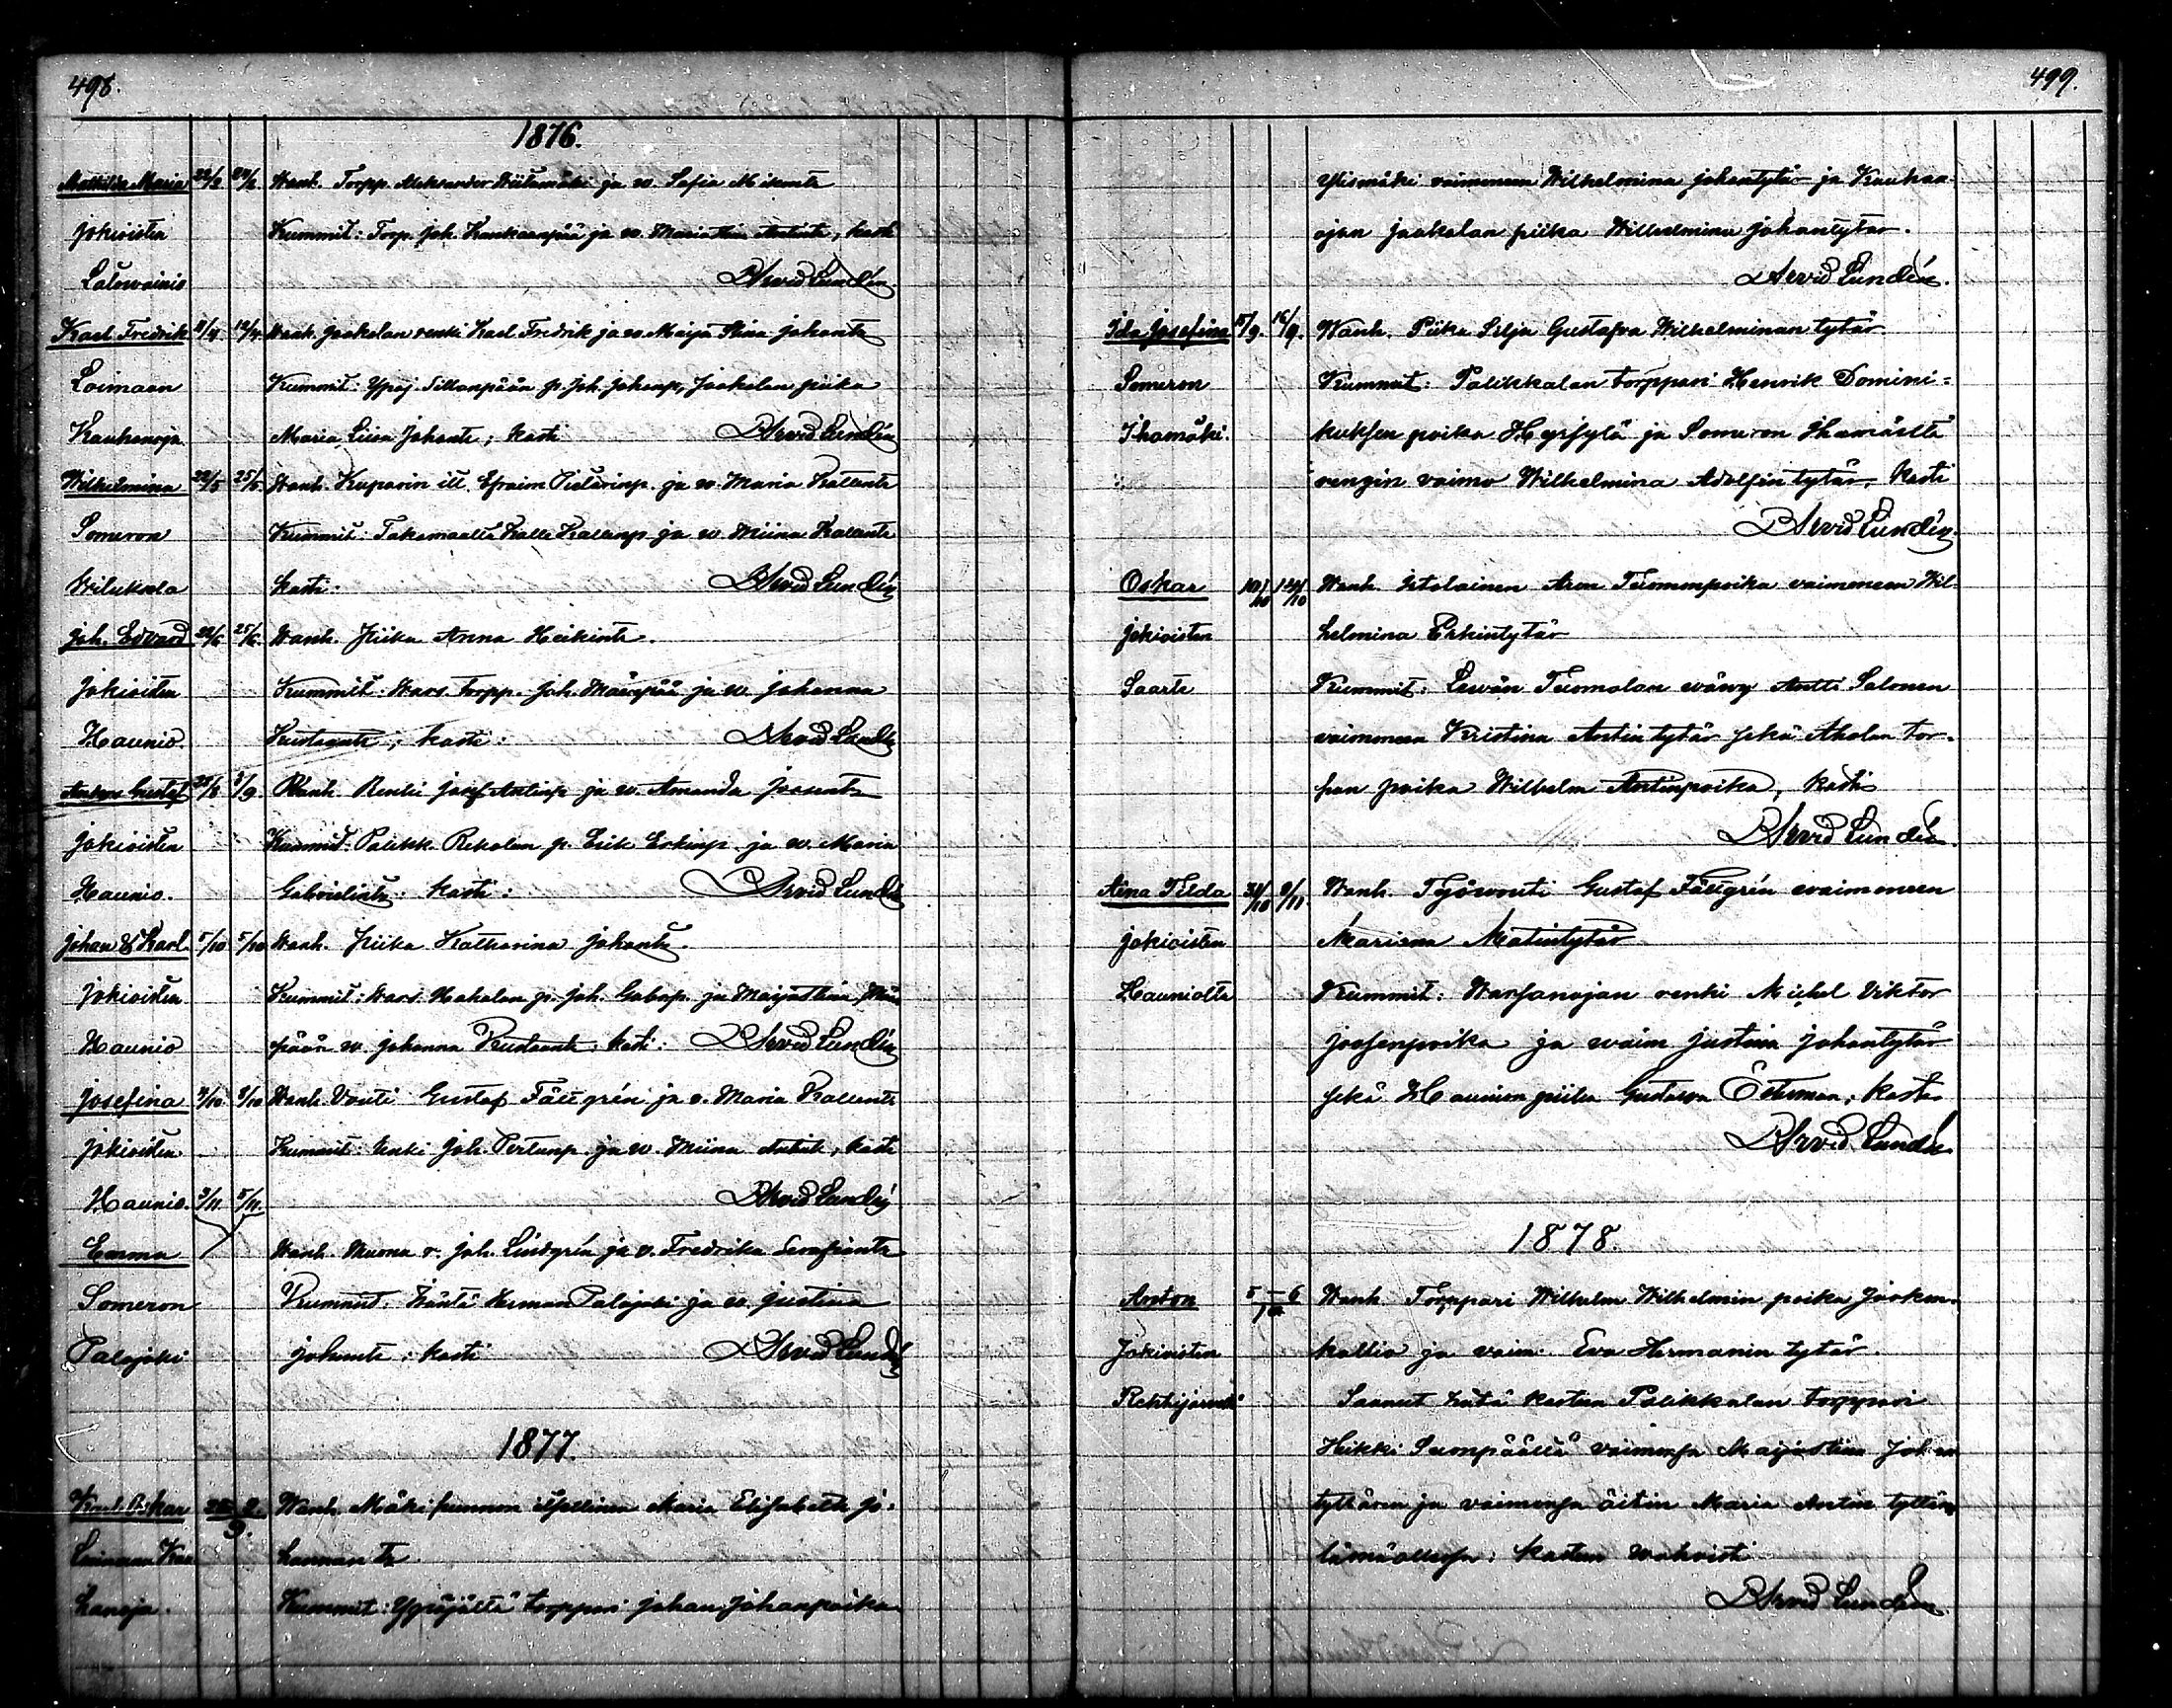 498.
1876.
Mathilda Maria 22/2 24/2 Wanh. Torpp. Aleksander Wiitamäki ja w. Sofia Mikents
Jokioisten Kummit: Torp. Joh. Kankaanpää ja w. Maria Antints, kasti
Latowainio B Arvid Lundén.
Karl Fredrik 11/4 12/4 Wanh. Jaakolan renki Karl Fredrik ja w. Maija Stina Johants
Loimaan Kummit: Ypäj. Sillanpään p. Joh. Johanp, Jaakolan piika
Kauhanoja Maria Liisa Johants; kasti B Arvid Lundén
Wilhelmina 22/5 25/5 Wanh. Kuparin itl. Efraim ja w. Maria Kallents
Someron Kummit: Kalle Kallenp. ja w. Miina Kallents
kasti: B Arvid Lundén
Joh. Edvard 22/6 25/6. Wanh. Piika Anna Heikints.
Jokioisten Kummit: Wars. torpp. Joh. Määnpää ja w. Johanna
Haunio Kustaants; kasti: B Arvid Lundén
Gustaf 28/8 3/9. Wanh. Renki Josef Antinp ja w. Amanda Joosents
Jokioisten Kummit: Palikk. Rekolan p. Erik Erkinp. ja w. Maria
Haunio. Gabrielints: kasti: B Arvid Lundén
Johan & Karl. 5/10 5/10 Wanh. Piika Katharina Johants.
Jokioisten Kummit: Wars. Hakalan p. Joh. Gabrp. ja Maijastina
Haunio pään w. Johanna Kustaants; kasti: B Arvid Lundén
Josefina 7/10 8/10 Wanh. Vouti Gustaf Fältgrén ja v. Maria Kallents
Jokioisten Kummit: Renki Joh. Pertunp. ja w. Miina Antints; kasti
Haunio. 3/11 5/11. B Arvid Lundén
Emma Wanh. Muona r. Joh. Lindgrén ja v. Fredrika Serafiants
Someron Kummit: Herman Palojoki ja w. Justina
Palojoki Johants; kasti B Arvid Lundén
1877.
Karl Oskar 2. Wanh. Mäkisunnon itsellinen Maria Elisabeth Jo-
Loimaan Kau 3. hannan ts.
hanoja. Kummit: Ypäjältä torppari Johan Johanpoika
499.
Ylismäki vaimoneen Wilhelmina Johantytär ja Kauhan-
ojan Jaakolan piika Wilhelmina Johantytär.
B Arvid Lundén.
Ida Josefina 15/9. 16/9. Wanh. Piika Silja Gustafva Wilhelminan tytär
Someron Kummit: Palikkalan torppari Henrik Domini-
Ihamäki. kuksen poika Hyrsylä ja Someron Ihamäeltä
rengin vaimo Wilhelmina Adolfin tytär, kasti
B Arvid Lundén.
Oskar 10/10 14/10 Wanh. Itstelainen Aron Tuomonpoika vaimoneen Wil-
Jokioisten helmina Erkintytär
Saarts Kummit: Lewän Tuomolan wäwy Antti Salonen
vaimoneen Kristina Antintytär sekä Aholan tor-
pan poika Wilhelm Antinpoika, kasti
B Arvid Lundén.
Aina Tilda 31/10 9/11 Wanh. Työwouti Gustaf Fältgrén waimoneen
Jokioisten Mariana Matintytär
Hauniolta Kummit: Warsanojan renki Michel Viktor
Joosenpoika ja waim Justina Johantytär
sekä Haunion piika Gustava Östman; kasti
B Arvid Lundén
1878.
Anton 5 – 6 Wanh. Torppari Wilhelm Wilhelmin poika Jookin-
Jokioisten kallio ja vaim. Eva Hermanin tytär.
Rehtijärveltä Saanut hätä kasteen Palikkalan torppari
Heikki Suonpäältä vaimonsa Maijastina Johan
tyttären ja vaimonsa äitin Maria Antin tyttären
läsnäollessa: kasteen wahwisti
B Arvid Lundén